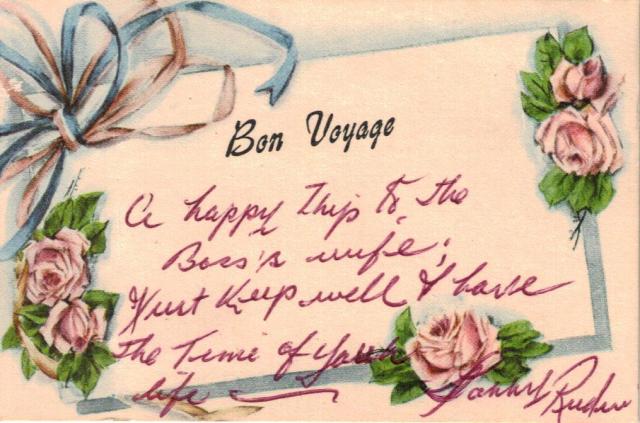 Bon Voyage
A happy trip to the
Boss's wife;
Just keep well & have
the Time of your
life